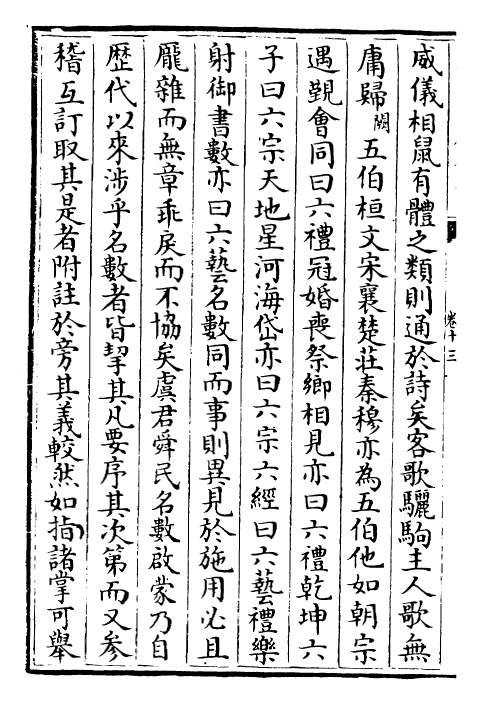 威儀相鼠有體之類則通於詩矣客歌驪駒主人歌無
庸歸闕五伯桓文宋襄楚莊秦穆亦為五伯他如朝宗
遇覲會同曰六禮冠婚喪祭鄉相見亦曰六禮乾坤六
子曰六宗天地星河海岱亦曰六宗六經曰六藝禮樂
射御書數亦曰六藝名數同而事則異見於施用必且
厖雜而無章乖戾而不協矣虞君舜民名數啟蒙乃自
歴代以來涉乎名數者皆挈其凡要序其次第而又参
稽互訂取其是者附註於旁其義較然如指諸掌可舉
卷十三